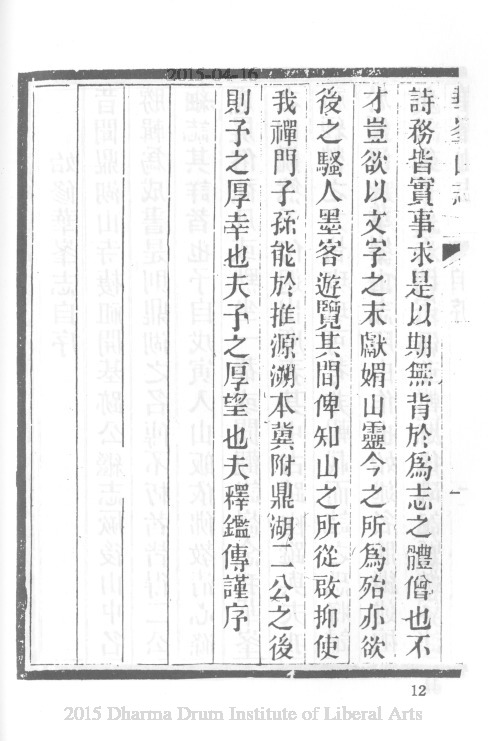 2015-04-16
華峯山志
詩務皆實事求是以期無背於爲志之體僧也不
才豈欲以文字之末獻媚山靈今之所爲殆亦欲
後之騷人墨客遊覽其間俾知山之所從啟抑使
我禪門子孫能於推源溯本冀附鼎湖二公之後
則予之厚幸也夫予之厚望也夫釋鑑傳謹序
12
2015 Dharma Drum Institute of Liberal Arts